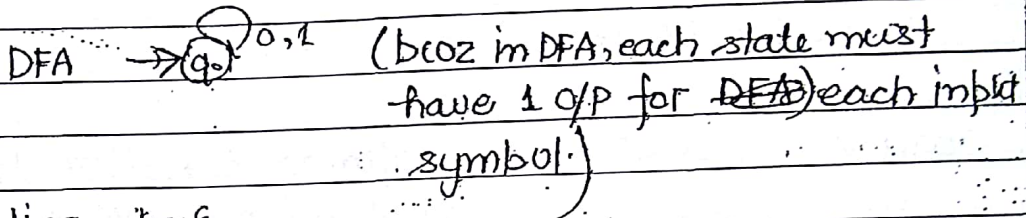 DFA → q₀ 0,1 (bcoz in DFA, each state must
have 1 O/P for DFA) each input
symbol.)